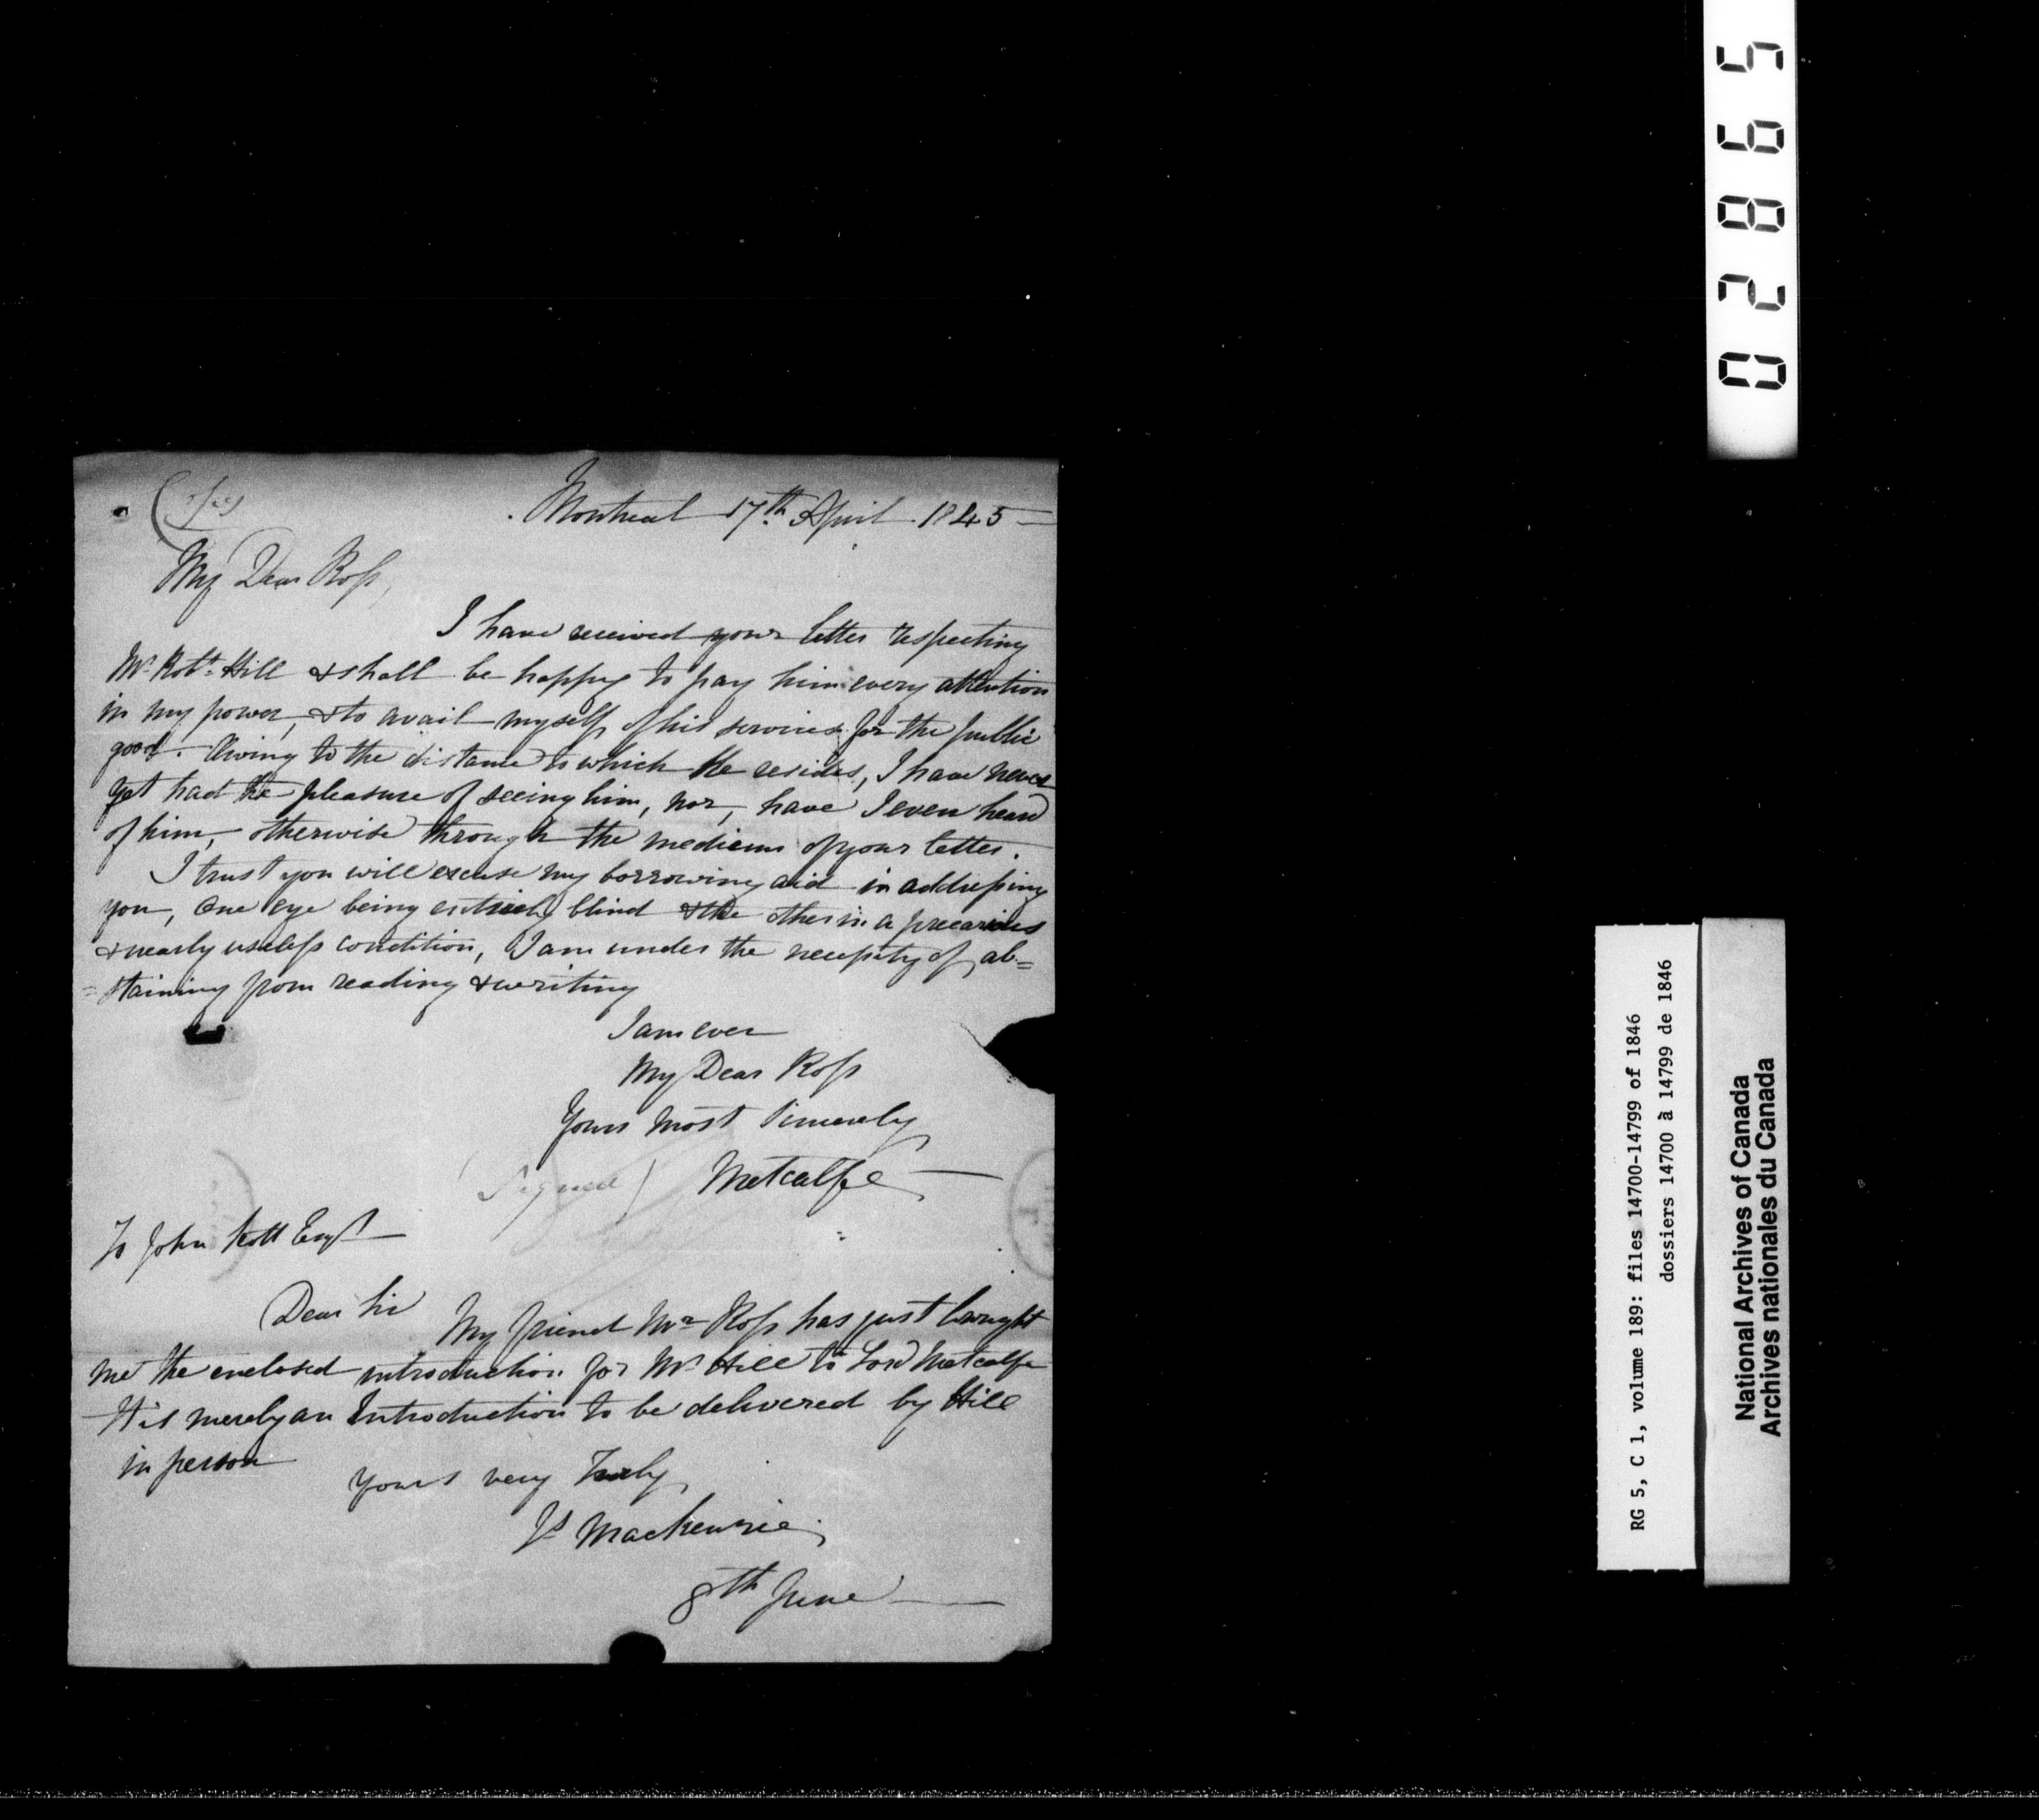 (Copy)
Montreal 17th April 1845 —
My Dear Ross,
I have received your letter respecting
Mr Robt Hill & shall be happy to pay him every attention
in my power, & to avail myself of his services for the public
good. Owing to the distance to which he resides, I have never
yet had the pleasure of seeing him, nor, have I even heard
of him, otherwise through the medium of your letter.
I trust you will excuse my borrowing aid in addressing
you, One eye being entirely blind & the other in a precarious
& nearly useless condition, I am under the necessity of ab=
=staining from reading & writing
I am ever
My Dear Ross
Yours most Sincerely
(Signed) Metcalfe —
To John Scott Esqr —
Dear Sir
My friend Mr Ross has just brought
me the enclosed introduction for Mr Hill to Lord Metcalfe
It is merely an Introduction to be delivered by Hill
in person
Yours very Truly
Js Mackenzie
8th June —
02865
RG 5, C 1, volume 189: files 14700-14799 of 1846
dossiers 14700 à 14799 de 1846
National Archives of Canada
Archives nationales du Canada